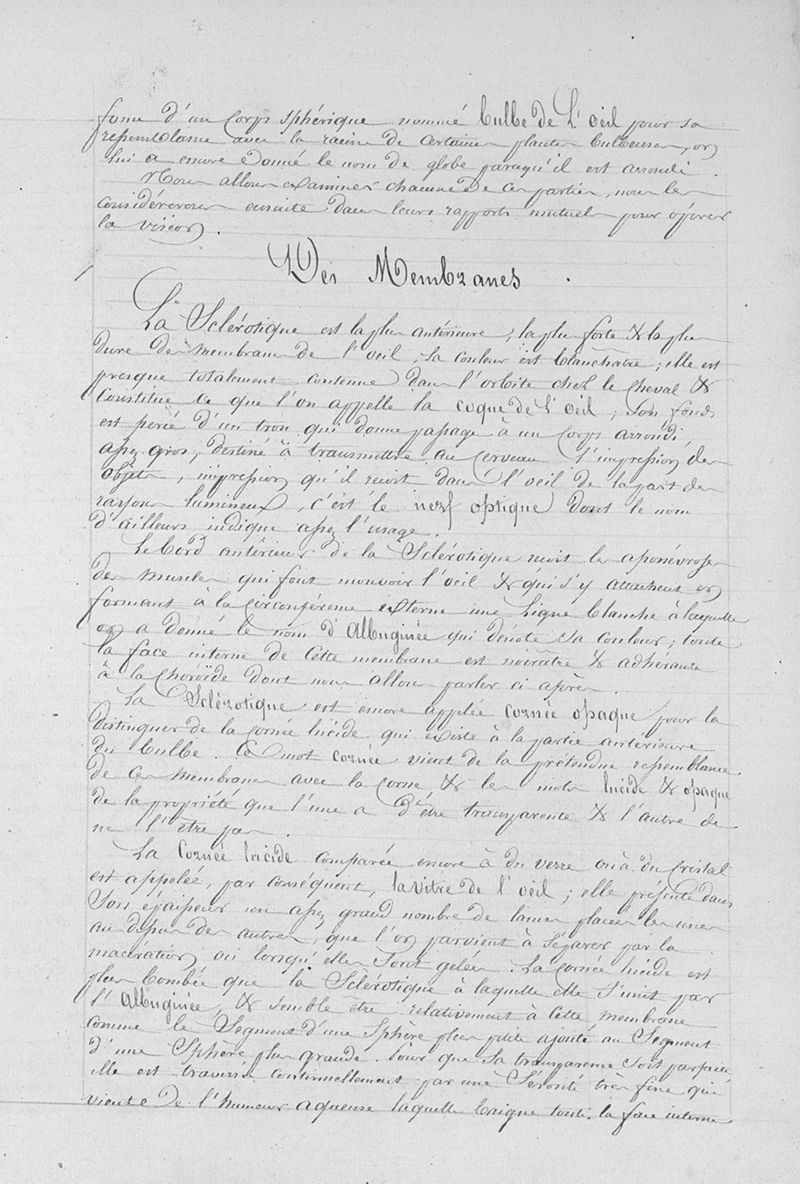 forme d'un Corps sphérique nommé bulbe de L'oeil pour sa
ressemblance avec la racine de certaines plantes bulbeuses, on
lui a encore donné le nom de globe parcequ'il est arrondi.
Nous allons examiner chacune de ces parties, nous les
considérerons ensuite dans leurs rapports mutuels pour opérer
la vision.
Des Membranes.
La Sclérotique est la plus antérieure, la plus forte & la plus
dure des membranes de l'oeil, sa couleur est blanchâtre; elle est
presque totalement contenue dans l'orbite chez le Cheval &
Constitue ce que l'on appelle la coque de L'oeil; Son fonds
est percé d'un trou qui donne passage à un Corps arrondi,
assez gros, destiné à transmettre au Cerveau l'impression des
objets, impression qu'il reçoit dans l'oeil de la part des
rayons lumineux, c'est le nerf optique dont le nom
d'ailleurs indique assez l'usage.
Le bord antérieur de la Sclérotique reçoit les aponévroses
des muscles qui font mouvoir l'oeil & qui s'y attachent en
formant à la circonférence externe une ligne blanche à laquelle
on a donné le nom d'Albuginée qui dénote sa couleur; toute
la face interne de cette membrane est noirâtre & adhérante
à la Choroïde dont nous allons parler ci après.
La Sclérotique est encore appelée cornée opaque pour la
distinguer de la cornée lucide qui existe à la partie antérieure
du bulbe. Ce mot cornée vient de la prétendue ressemblance
de ces membranes avec la Corne & les mots lucide & opaque
de la propriété que l'une a d'être transparente & l'autre de
ne l'être pas.
La Cornée lucide comparée encore à du verre ou à du Cristal
est appelée, par conséquent, la vitre de l'oeil; elle présente dans
Son épaisseur un assez grand nombre de lames placées les unes
au dessus des autres, que l'on parvient à séparer par la
macération ou lorsqu'elles Sont gelées. La Cornée lucide est
plus bombée que la Sclérotique à laquelle elle s'unit par
l'Albuginée, & semble être relativement à Cette membrane
comme le Segment d'une Sphère plus petite ajouté au Segment
d'une Sphère plus grande. Pour que sa transparence soit parfaite
elle est traversée continuellement par une Sérosité très fine qui
vient de l'humeur aqueuse laquelle baigne toute la face interne